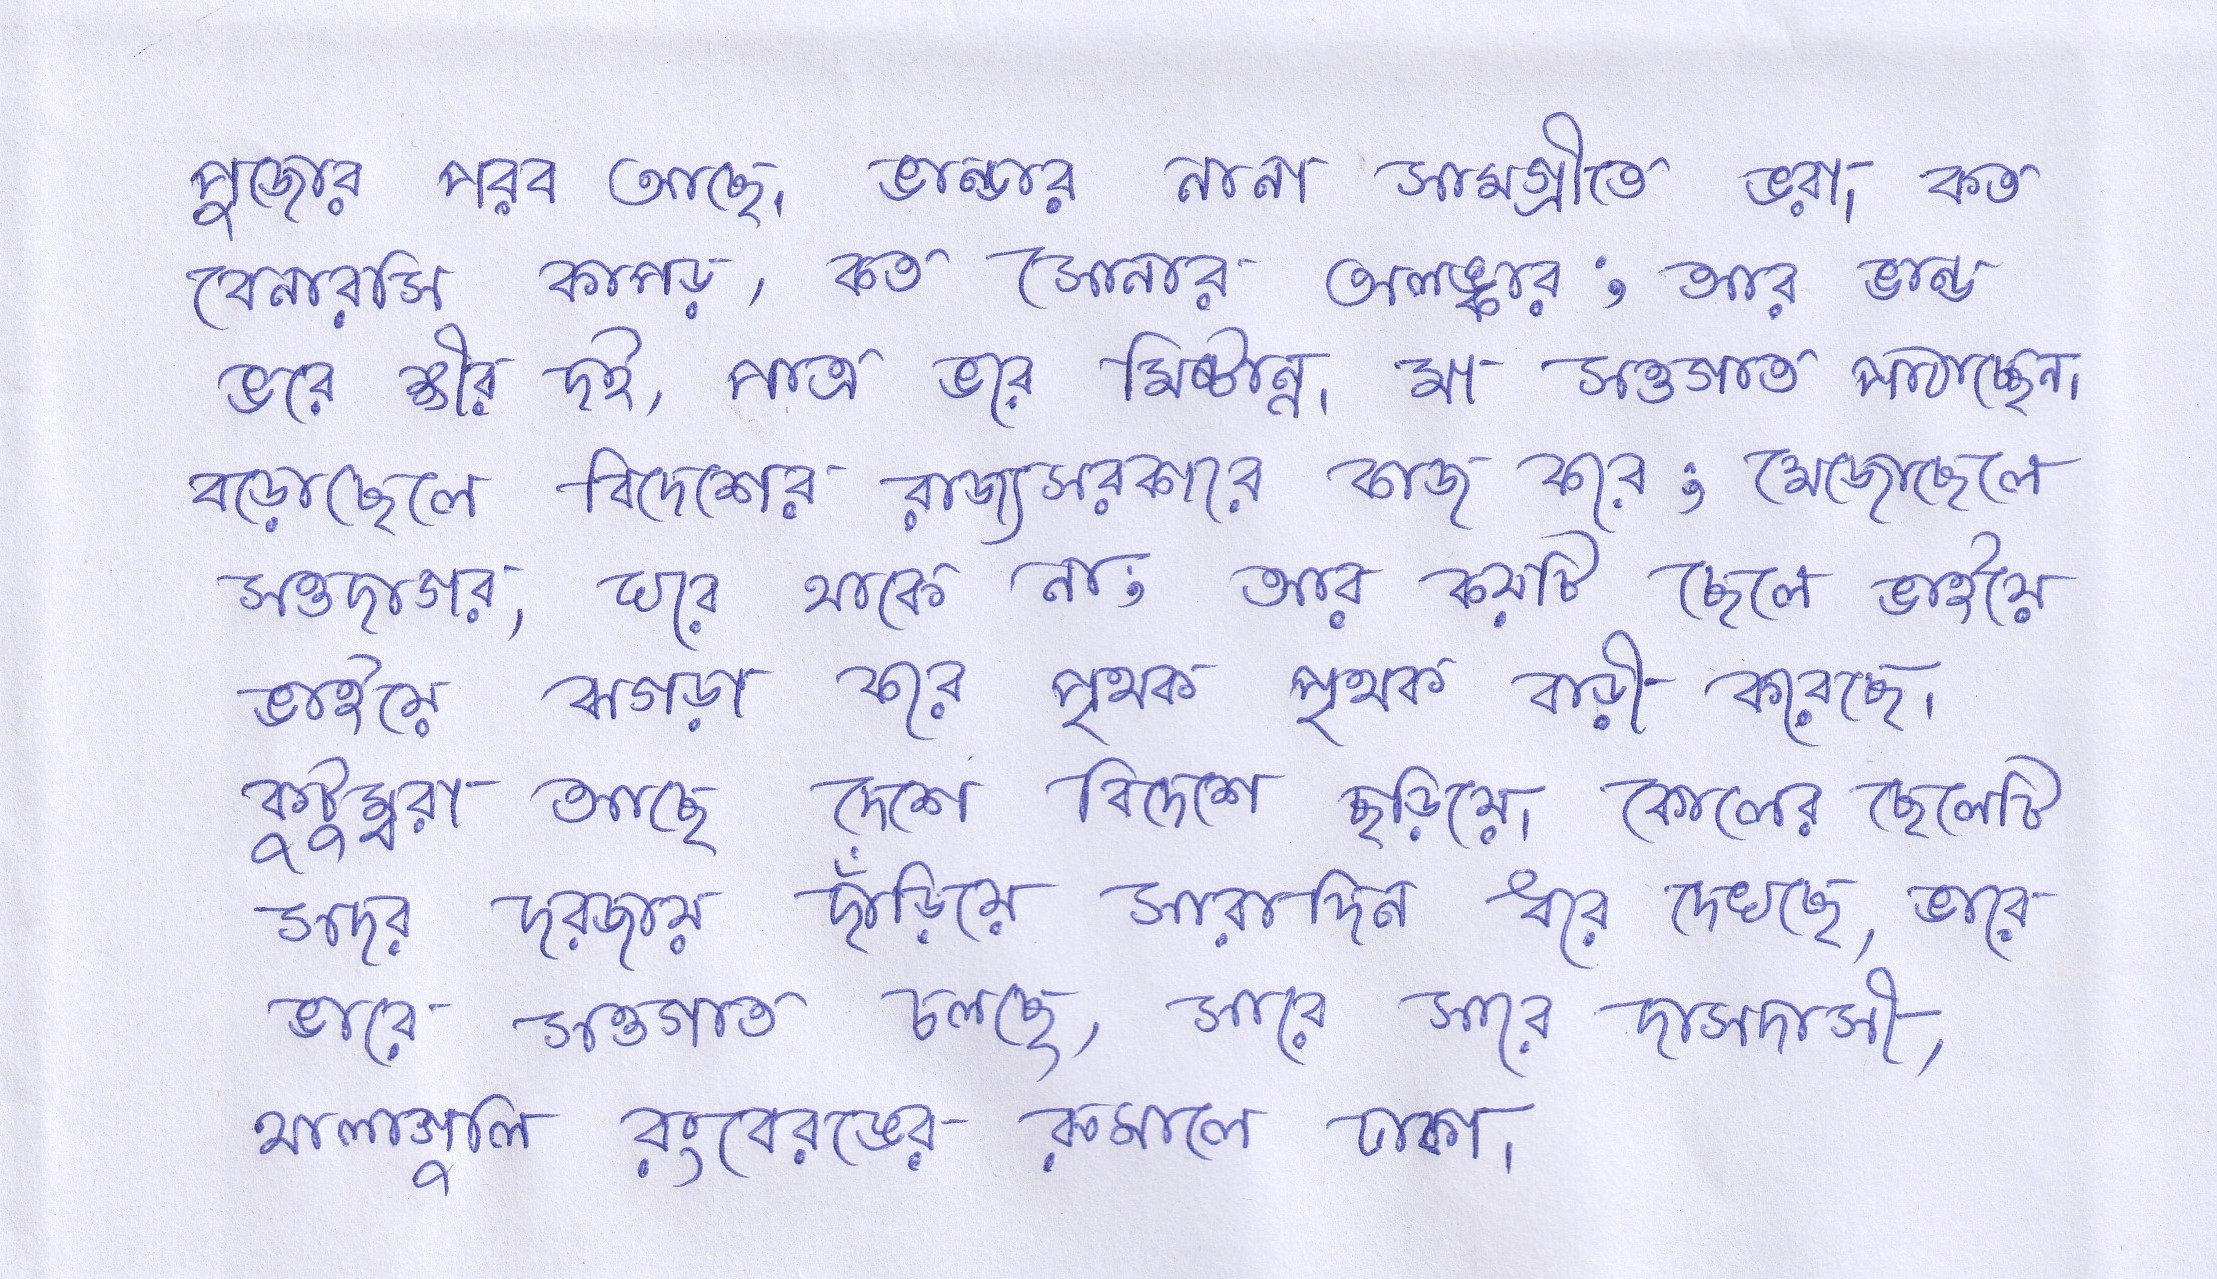 পুজোর পরব আছে। ভান্ডার নানা সামগ্রীতে ভরা। কত
বেনারসি কাপড়, কত সোনার অলঙ্কার; আর ভান্ড
ভরে ক্ষীর দই, পাত্র ভরে মিষ্টান্ন। মা সওগাত পাঠাচ্ছেন।
বড়োছেলে বিদেশের রাজ্যসরকারে কাজ করে; মেজোছেলে
সওদাগর, ঘরে থাকে না; আর কয়টি ছেলে ভাইয়ে
ভাইয়ে ঝগড়া করে পৃথক পৃথক বাড়ী করেছে।
কুটুম্বরা আছে দেশে বিদেশে ছড়িয়ে। কোলের ছেলেটি
সদর দরজায় দাঁড়িয়ে সারাদিন ধরে দেখছে, ভারে
ভারে সওগাত চলছে, সারে সারে দাসদাসী,
থালাগুলি রংবেরঙের রুমালে ঢাকা।